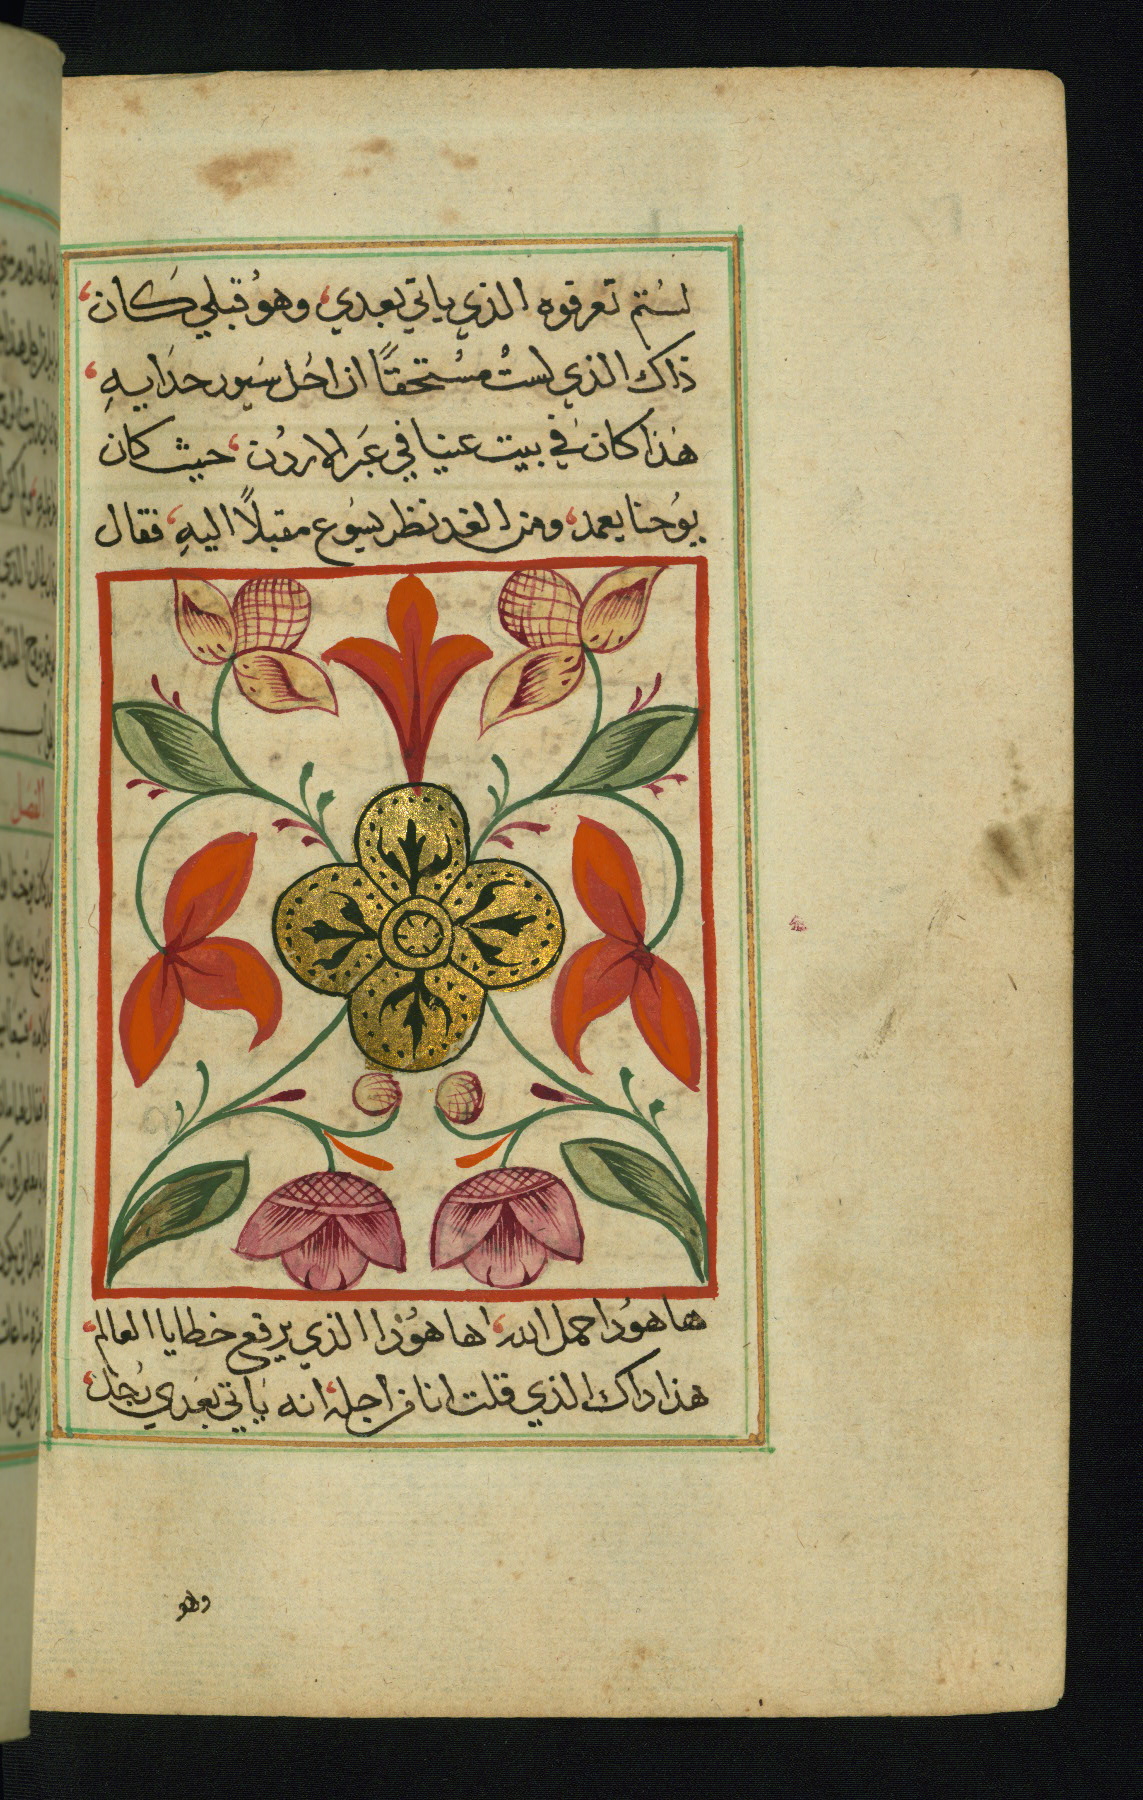 لستم تعرفوه الذي ياتي بعدي، وهو قبلي كان،
ذاك الذي لست مستحقًا ان احل سيور حدايه،
هذا كان في بيت عنيا في عبر الاردن، حيث كان
يوحنا يعمد، ومن الغد نظر يسوع مقبلًا اليه، فقال
ها هودا حمل الله، ها هوذا الذي يرفع خطايا العالم،
هذا داك الذي قلت انا من اجله، انه ياتي بعدي رجل،
وهو